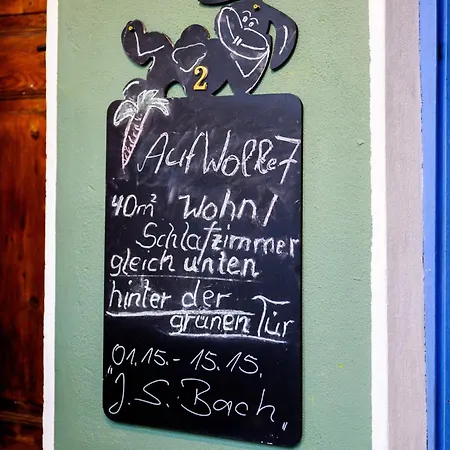 2
Auf Wolke 7
40m² Wohn/
Schlafzimmer
gleich unten
hinter der
grünen Tür
01.15.-15.15.
"J. S. Bach"